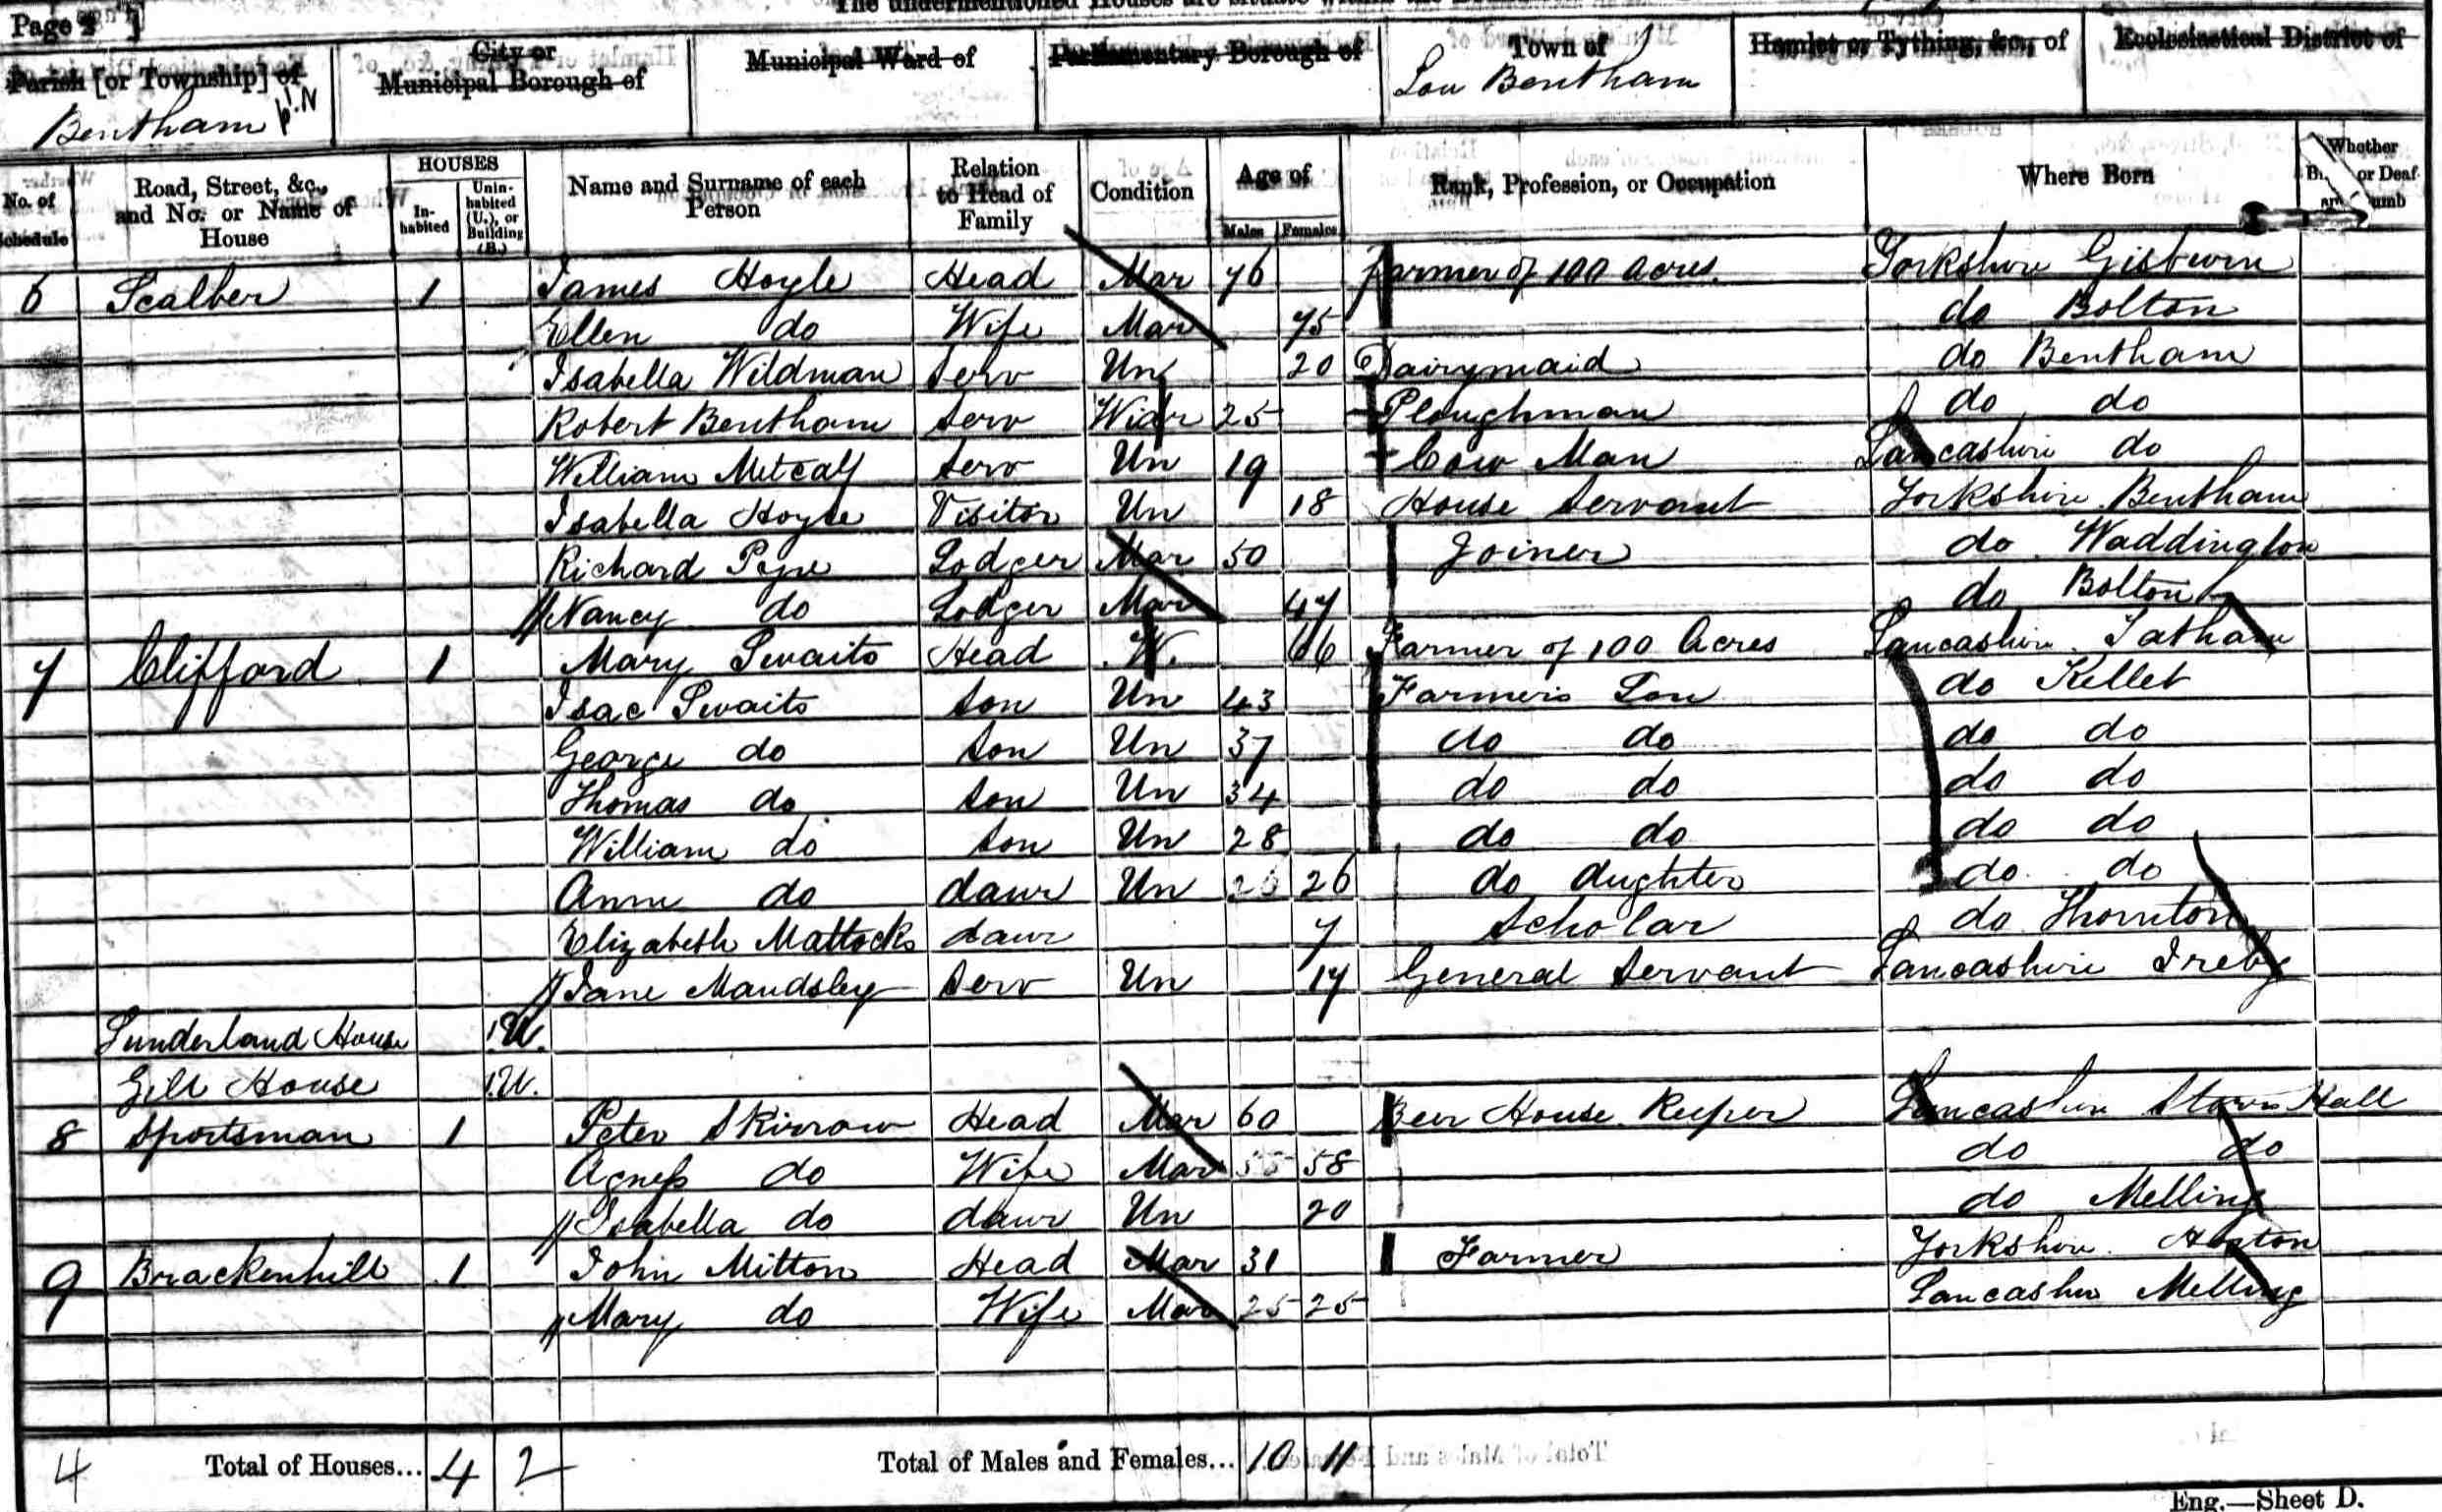 Page 2 ]
The undermentioned Houses are situate within the
Parish [or Township] of
City or Municipal Borough of
Municipal Ward of
Parliamentary Borough of
Town of
Hamlet or Tything, &c., of
Ecclesiastical District of
Bentham p.N
Low Bentham
No. of Schedule
Road, Street, &c., and No. or Name of House
HOUSES
In-habited
Unin-habited (U.), or Building (B.)
Name and Surname of each Person
Relation to Head of Family
Condition
Age of
Males Females
Rank, Profession, or Occupation
Where Born
Whether or Deaf umb
6 Scalber 1 James Hoyle Head Mar 76 Farmer of 100 Acres. Yorkshire Gisburn
Ellen do Wife Mar 75 do Bolton
Isabella Wildman Serv Un 20 Dairymaid do Bentham
Robert Bentham Serv Widr 25 Ploughman do do
William Metcalf Serv Un 19 Cow Man Lancashire do
Isabella Hoyle Visitor Un 18 House Servant Yorkshire Bentham
Richard Pye Lodger Mar 50 Joiner do Waddington
Nancy do Lodger Mar 47 do Bolton
7 Clifford 1 Mary Swaits Head W. 66 Farmer of 100 Acres Lancashire Tatham
Isac Swaits Son Un 43 Farmers Son do Kellet
George do Son Un 37 do do do do
Thomas do Son Un 34 do do do do
William do Son Un 28 do do do do
Anne do dawr Un 26 26 do dughter do do
Elizabeth Mattocks dawr 7 Scholar do Thornton
Jane Mandsley Serv Un 17 General Servant Lancashire Ireby
Sunderland House 1.U.
Gill House 1.U.
8 Sportsman 1 Peter Skirrow Head Mar 60 Beer House Keeper Lancashire Hall
Agness do Wife Mar 58 do do
Isabella do dawr Un 20 do Melling
9 Brackenhill 1 John Mitton Head Mar 31 Farmer Yorkshire Horton
Mary do Wife Mar 25 25 Lancashire Melling
4 Total of Houses... 4 2 Total of Males and Females... 10 11
Eng.—Sheet D.